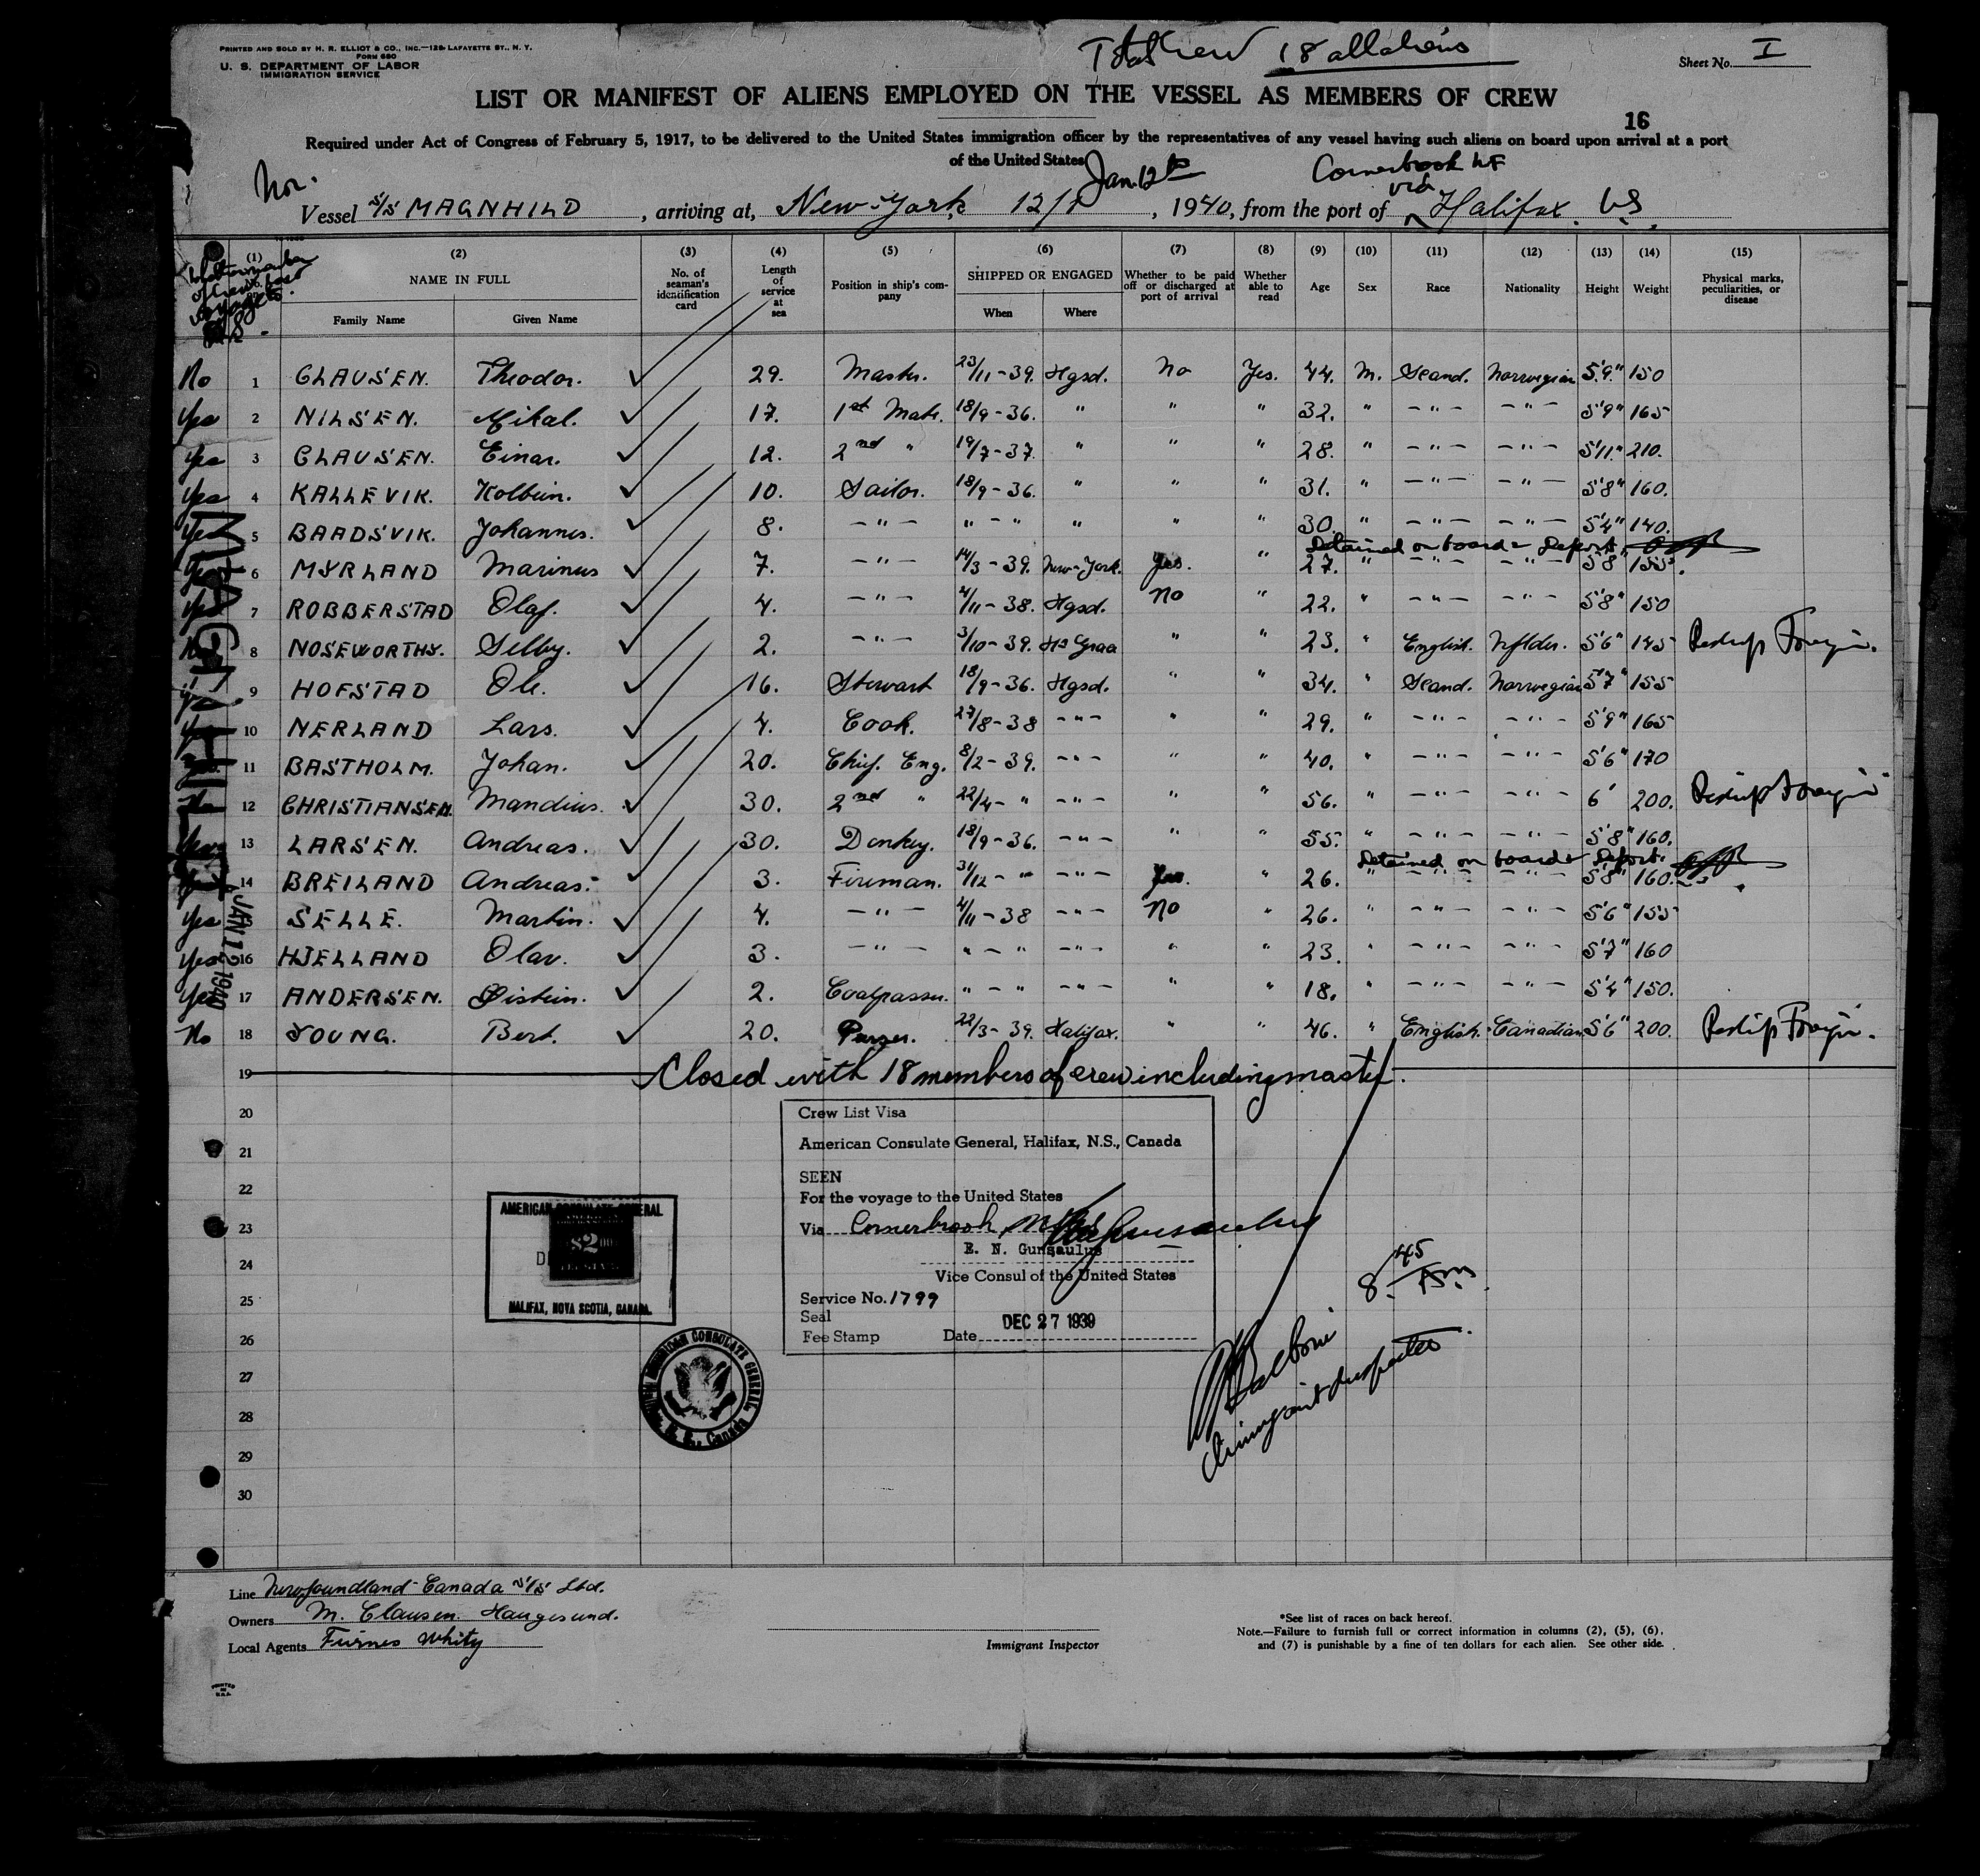 PRINTED AND SOLD BY H. R. ELLIOT & CO., INC.—128 LAFAYETTE ST., N. Y.
FORM 680
U. S. DEPARTMENT OF LABOR
IMMIGRATION SERVICE
18 all aliens
Sheet No. I
LIST OR MANIFEST OF ALIENS EMPLOYED ON THE VESSEL AS MEMBERS OF CREW
16
Required under Act of Congress of February 5, 1917, to be delivered to the United States immigration officer by the representatives of any vessel having such aliens on board upon arrival at a port
of the United States
Jan. 12th
Cornerbrook NF
via
Nor.
Vessel S/S MAGNHILD, arriving at, New-York, 12/1, 1940, from the port of Halifax.
(1) (2) (3) (4) (5) (6) (7) (8) (9) (10) (11) (12) (13) (14) (15)
NAME IN FULL No. of seaman's identification card Length of service at sea Position in ship's company SHIPPED OR ENGAGED Whether to be paid off or discharged at port of arrival Whether able to read Age Sex Race Nationality Height Weight Physical marks, peculiarities, or disease
Family Name Given Name When Where
No 1 CLAUSEN. Theodor. ✓ 29. Master. 23/11-39. Hgsd. No Yes. 44. M. Scand. Norwegian 5'9" 150
Yes 2 NILSEN. Mikal. ✓ 17. 1st Mate. 18/9-36. " " " 32. " -"- -"- 5'9" 165
Yes 3 CLAUSEN. Einar. ✓ 12. 2nd " 19/7-37. " " " 28. " -"- -"- 5'11" 210.
Yes 4 KALLEVIK. Kolbein. ✓ 10. Sailor. 18/9-36. " " " 31. " -"- -"- 5'8" 160.
Yes 5 BAADSVIK. Johannes. ✓ 8. -"- "-" " " " 30. " -"- -"- 5'4" 140.
Detained on board & Deport.
6 MYRLAND Marinus ✓ 7. -"- 14/3-39. New-York. Yes. " 27. " -"- -"- 5'8 155.
Yes 7 ROBBERSTAD Olaf. ✓ 4. -"- 4/11-38. Hgsd. No " 22. " -"- -"- 5'8" 150
8 NOSEWORTHY. Selby. ✓ 2. -"- 3/10-39. " " 23. " English. Nflder. 5'6" 145 Reship Foreign.
9 HOFSTAD Ole. ✓ 16. Stewart 18/9-36. Hgsd. " " 34. " Scand. Norwegian 5'7" 155
10 NERLAND Lars. ✓ 4. Cook. 27/8-38 -"- " " 29. " -"- -"- 5'9" 165
11 BASTHOLM. Johan. ✓ 20. Chief. Eng. 8/2-39. -"- " " 40. " -"- -"- 5'6" 170
No 12 CHRISTIANSEN. Mandius. ✓ 30. 2nd " 22/4-" -"- " " 56. " -"- -"- 6' 200. Reship Foreign
Yes 13 LARSEN. Andreas. ✓ 30. Donkey. 18/9-36. -"- " " 55. " -"- -"- 5'8" 160.
Detained on board & Deport.
14 BREILAND Andreas. ✓ 3. Fireman. 31/12-" -"- Yes. " 26. " -"- -"- 5'8" 160.
Yes SELLE. Martin. ✓ 4. -"- 4/11-38 -"- No " 26. " -"- -"- 5'6" 155
Yes 16 HJELLAND Olav. ✓ 3. -"- "-" -"- " " 23. " -"- -"- 5'7" 160
Yes 17 ANDERSEN. Øistein. ✓ 2. Coalpasser. "-" -"- " " 18. " -"- -"- 5'4" 150.
No 18 YOUNG. Bert. ✓ 20. Purser. 22/3-39. Halifax. " " 46. " English. Canadian 5'6" 200. Reship Foreign.
JAN 12 1940
19 Closed with 18 members of crew including master.
20
21
22
23
24
25
26
27
28
29
30
Crew List Visa
American Consulate General, Halifax, N.S., Canada
SEEN
For the voyage to the United States
Via Cornerbrook Nfld
E. N. Gunsaulus
Vice Consul of the United States
Service No. 1799
Seal
Fee Stamp Date DEC 27 1939
AMERICAN CONSULATE GENERAL
$2.00
HALIFAX, NOVA SCOTIA, CANADA.
AMERICAN CONSULATE GENERAL, Canada
8 45 AM
Immigrant Inspector
Line Newfoundland-Canada S/S Ltd.
Owners M. Clausen. Haugesund.
Local Agents Furnes Whity
Immigrant Inspector
*See list of races on back hereof.
Note.—Failure to furnish full or correct information in columns (2), (5), (6), and (7) is punishable by a fine of ten dollars for each alien. See other side.
PRINTED IN U.S.A.